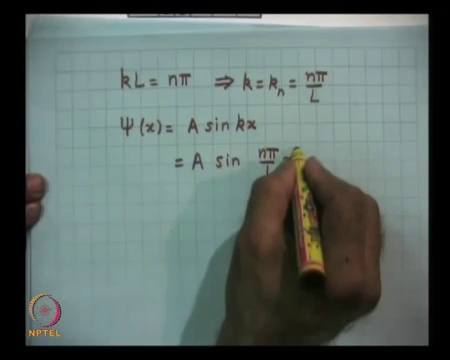 kL = nπ ⇒ k = kₙ = nπ/L
Ψ(x) = A sin kx
= A sin nπ/L
NPTEL